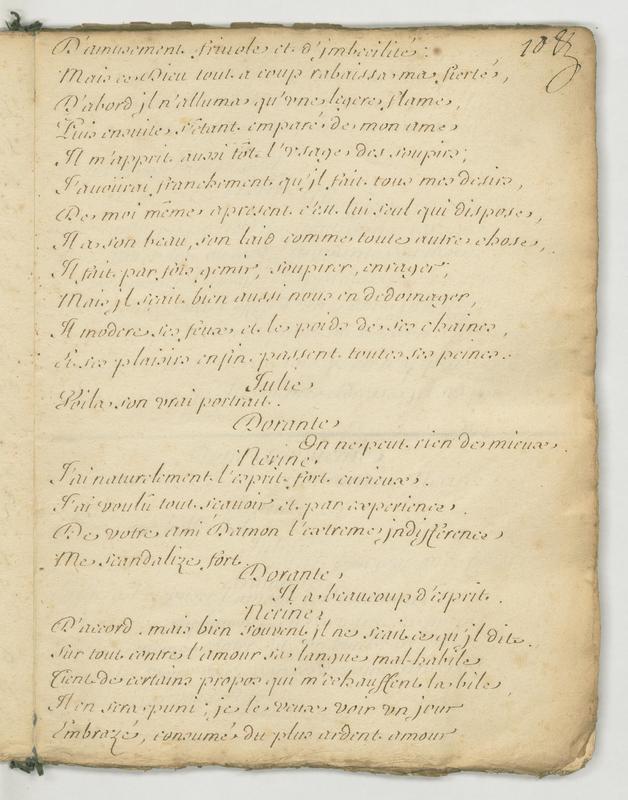 108
D'amusement friuole et d'jmbecilité:
Mais ce Dieu tout a coup rabaissa ma fierté,
D'abord jl n'alluma qu'vne legere flame,
Puis ensuite s'etant emparé de mon ame
Il m'apprit aussi tôt l'vsage des soupirs;
J'avoüirai franchement qu'jl fait tous mes desirs,
De moi même apresent c'est lui seul qui dispose,
Il a son beau, son laid comme toute autre chose,
Il fait par fois gemir, soupirer, enrager;
Mais jl sçait bien aussi nous en dedomager,
Il modere ses feux et le poids de ses chaines,
Et ses plaisirs enfin passent toutes ses peines.
Julie
Voila son vrai portrait.
Dorante
On ne peut rien de mieux.
Nerine
J'ai naturelement l'esprit fort curieux.
J'ai voulû tout scauoir et par experience.
De votre ami Damon l'extreme jndifference
Me scandalize fort.
Dorante
Il a beaucoup d'esprit.
Nerine
D'accord. mais bien souvent jl ne scait ce qu'jl dit.
Sur tout contre l'amour sa langue mal-habile
Tient de certains propos qui m'echauffent la bile,
Il en sera puni; je le veux voir vn jour
Embrazé, consumé du plus ardent amour